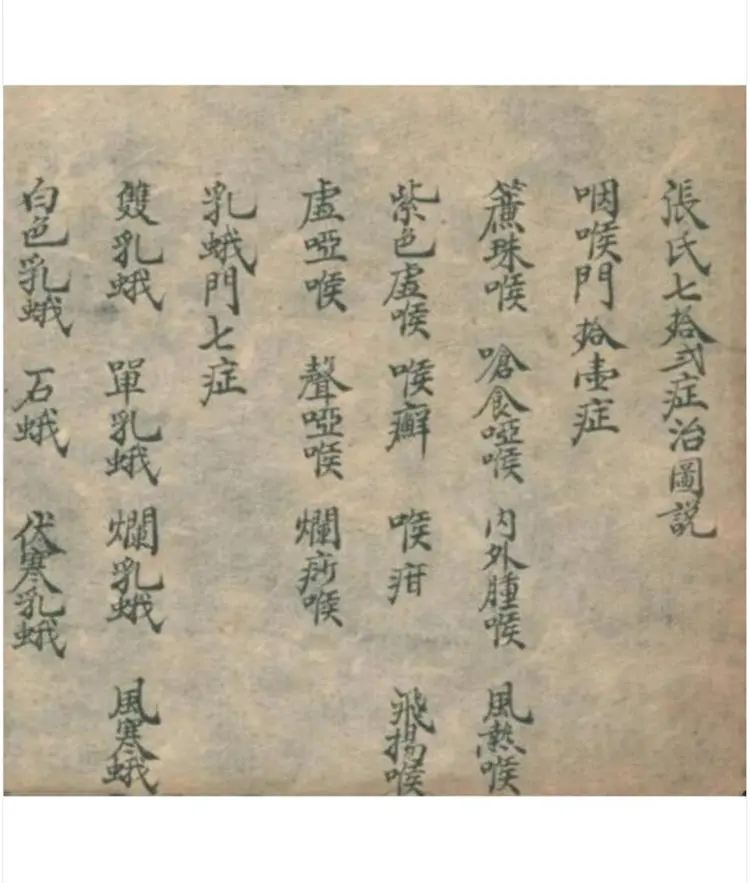 張氏七拾弍症治圖説
咽喉門拾壹症
簾珠喉 嗆食啞喉 内外腫喉 風熱喉
紫色虛喉 喉癬 喉疳 飛揚喉
虛啞喉 聲啞喉 爛痧喉
乳蛾門七症
雙乳蛾 單乳蛾 爛乳蛾 風寒蛾
白色乳蛾 石蛾 伏寒乳蛾